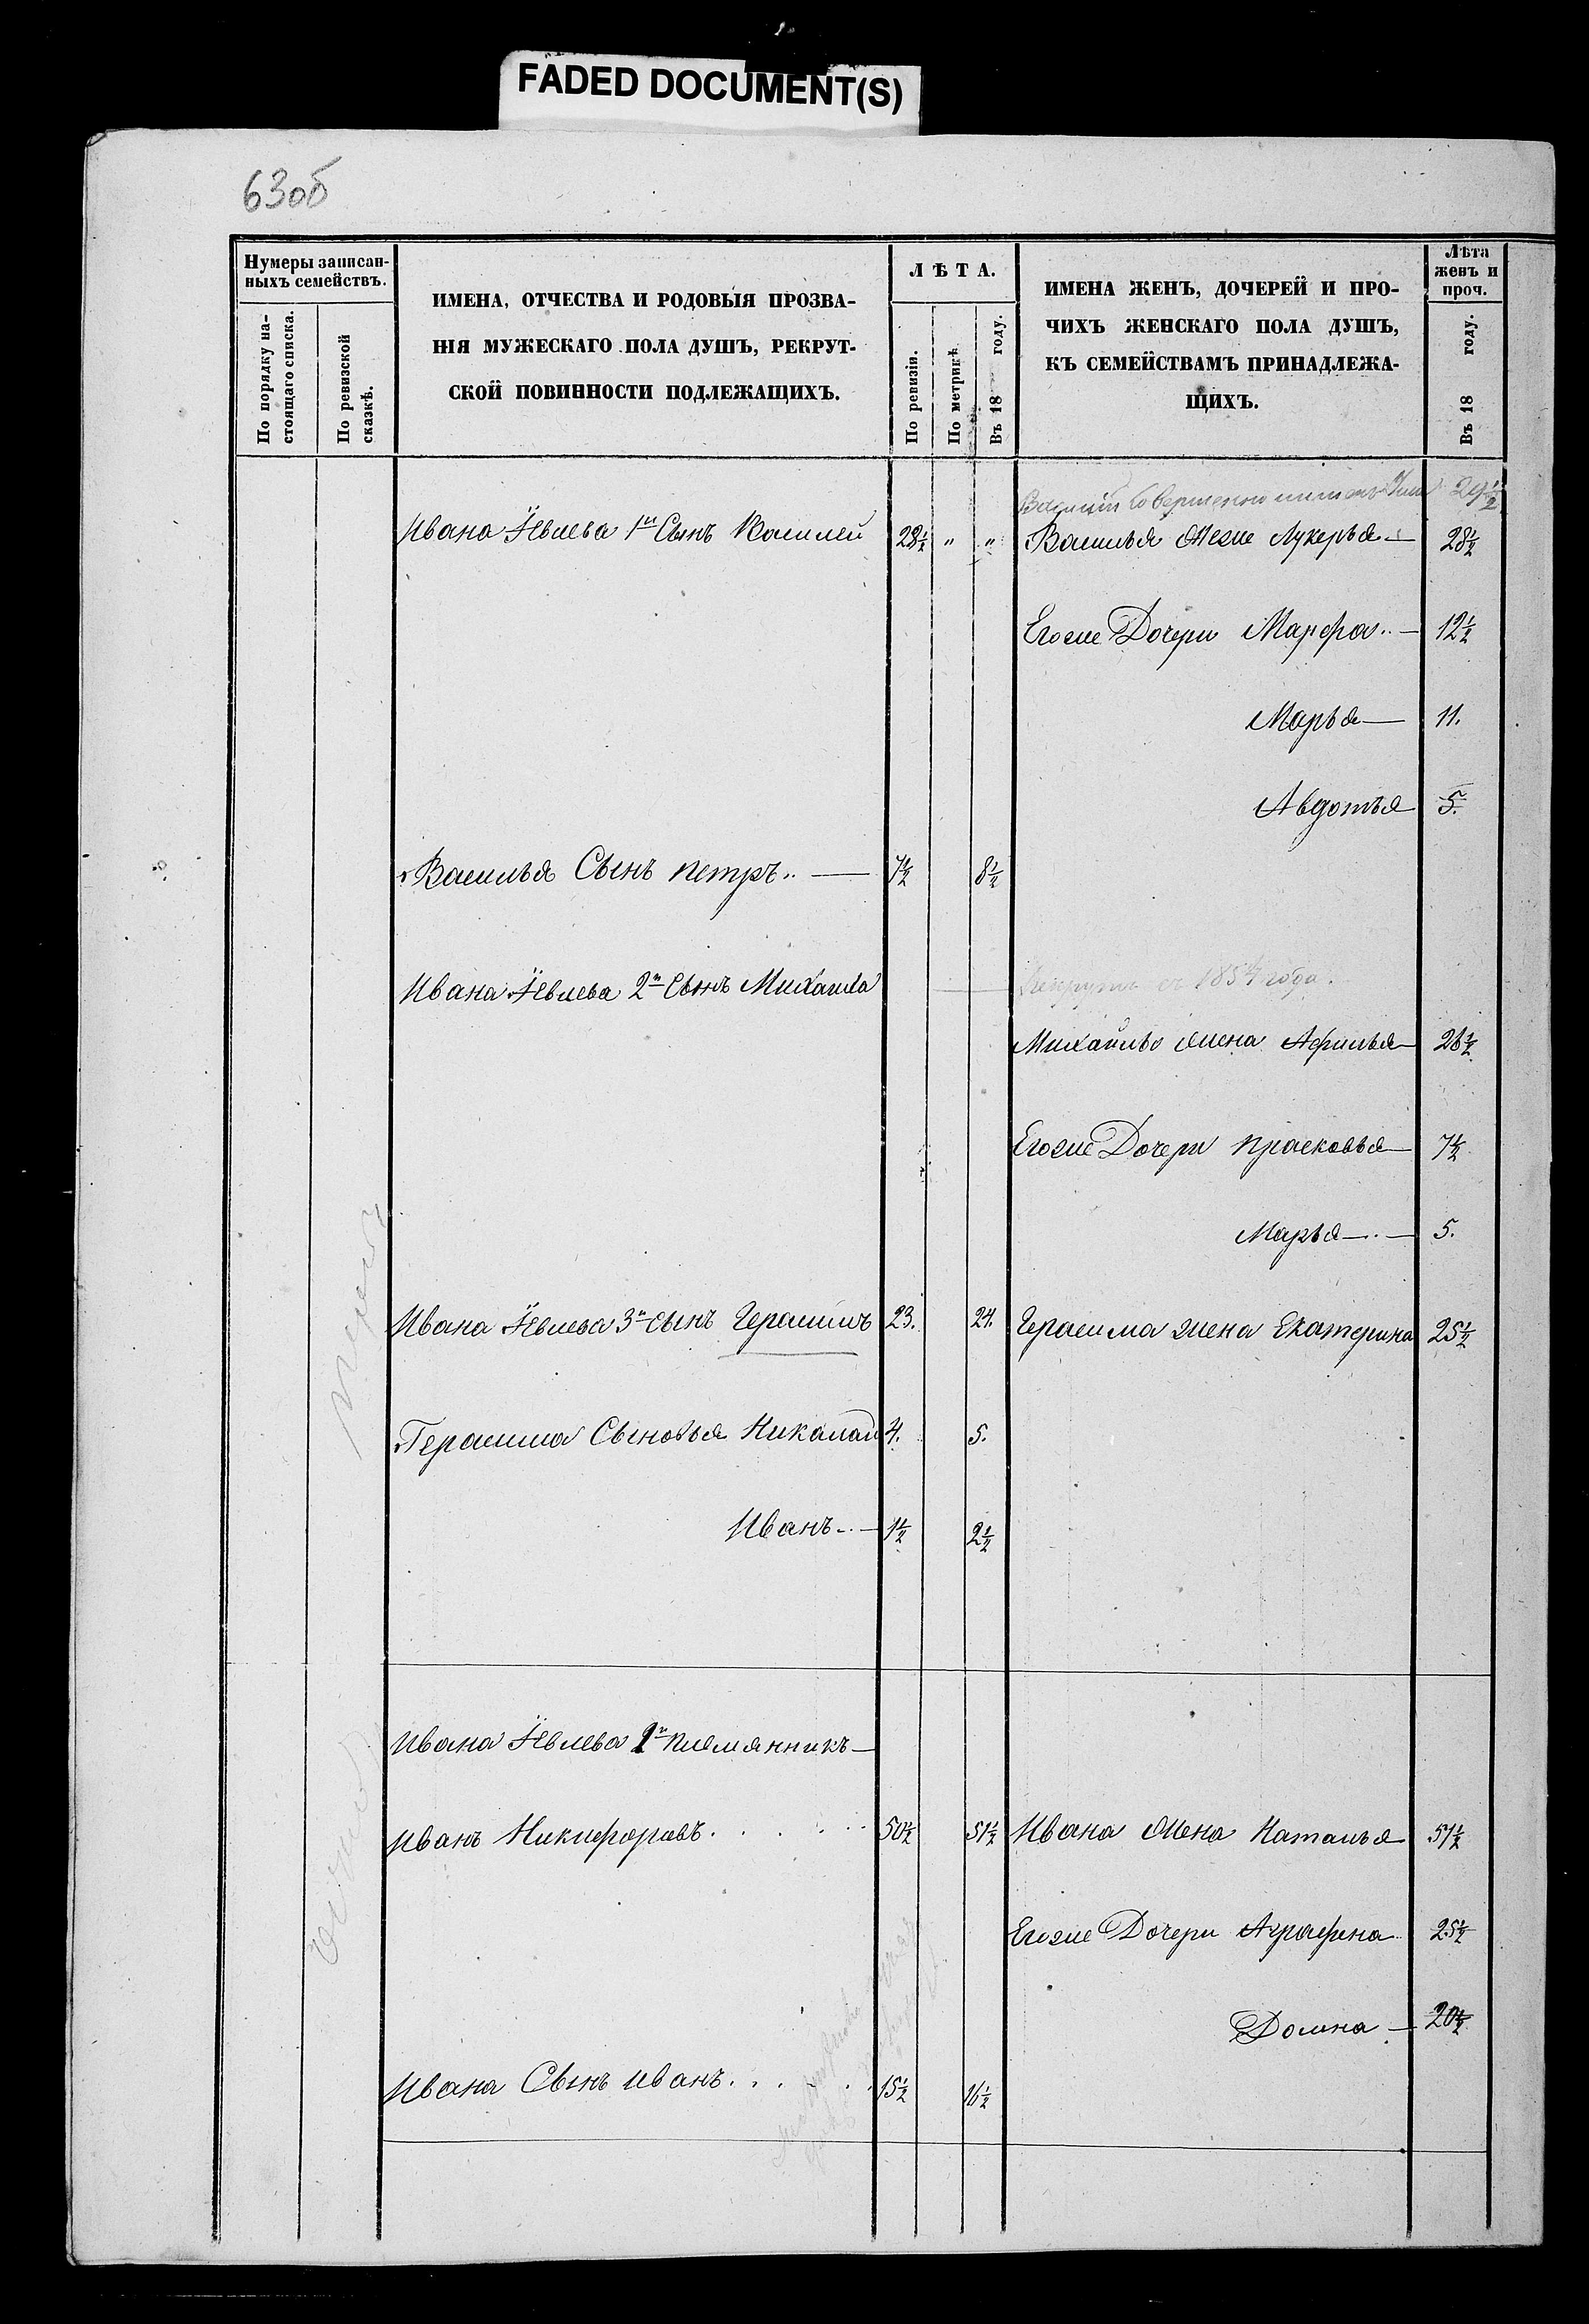 FADED DOCUMENT(S)
63об
Нумеры записан-
ныхъ семействъ.
По порядку на-
стоящаго списка.
По ревизской
сказкѣ.
ИМЕНА, ОТЧЕСТВА И РОДОВЫЯ ПРОЗВА-
НІЯ МУЖЕСКАГО ПОЛА ДУШЪ, РЕКРУТ-
СКОЙ ПОВИННОСТИ ПОДЛЕЖАЩИХЪ.
ЛѢТА.
По ревизіи.
По метрикѣ.
Въ 18 году.
ИМЕНА ЖЕНЪ, ДОЧЕРЕЙ И ПРО-
ЧИХЪ ЖЕНСКАГО ПОЛА ДУШЪ,
КЪ СЕМЕЙСТВАМЪ ПРИНАДЛЕЖА-
ЩИХЪ.
Лѣта
женъ и
проч.
Въ 18 году.
29½
Ивана Iевлева 1й Сынъ Василей 28½ " " Василья Жена Лукерья — 28½
Егоже Дочери Марфа — 12½
Марья — 11.
Авдотья 5.
Василья Сынъ петръ — 7½ 8½
Ивана Iевлева 2й Сынъ Михаила
1854 года.
Михайлы жена Афимья — 26½
Егоже Дочери прасковья — 7½
Марья — 5.
Ивана Iевлева 3й Сынъ Герасимъ 23. 24. Герасима жена Екатерина 25½
Герасима Сыновья Николай 4. 5.
Иванъ — 1½ 2½
Ивана Iевлева 2й племянникъ —
Иванъ Никифоровъ 50½ 51½ Ивана Жена Наталья 51½
Егоже Дочери Аграфена 25½
Домна — 20½
Ивана Сынъ иванъ 15½ 16½